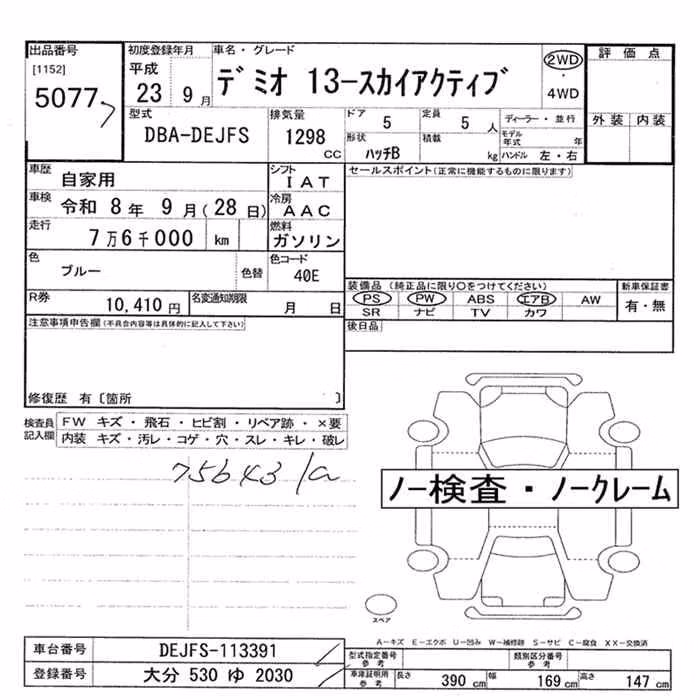 出品番号 初度登録年月 車名・グレード 評価点
[1152] 平成 デミオ 13-スカイアクティブ 2WD
5077 23 9月 ・ 4WD
型式 排気量 ドア 5 定員 5人 ディーラー・並行 外装 内装
DBA-DEJFS 1298 CC 形状 ハッチB 積載 kg モデル年式 年
ハンドル 左・右
車歴 自家用 シフト IAT セールスポイント(正常に機能するものに限ります)
車検 令和 8年 9月(28日) 冷房 AAC
走行 7万6千000 km 燃料 ガソリン
色 ブルー 色替 色コード 40E
装備品(純正品に限り○をつけてください) 新車保証書
PS PW ABS エアB AW 有・無
SR ナビ TV カワ
R券 10,410円 名変通知期限 月 日
後日品
注意事項申告欄(不具合内容等は具体的に記入して下さい)
修復歴 有〔箇所 〕
検査員記入欄 FW キズ・飛石・ヒビ割・リペア跡・×要
内装 キズ・汚レ・コゲ・穴・スレ・キレ・破レ
75643
ノー検査・ノークレーム
スペア
A-キズ E-エクボ U-凹み W-補修跡 S-サビ C-腐食 XX-交換済
車台番号 DEJFS-113391 型式指定番号 参考 類別区分番号 参考
登録番号 大分 530 ゆ 2030 車庫証明用 参考 長さ 390cm 幅 169cm 高さ 147cm